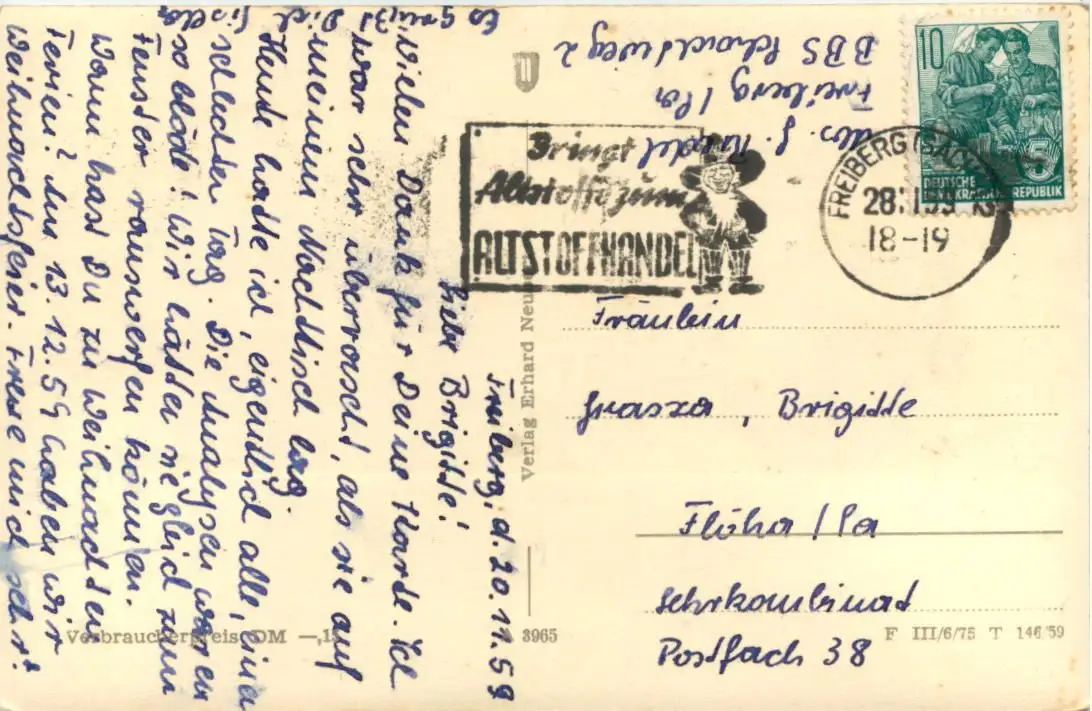 Freiberg, d. 20.11.59
Liebe Brigitte!
Vielen Dank für Deine Karte. Ich
war sehr überrascht, als sie auf
meinem Nachttisch lag.
Heute hatte ich, eigendlich alle, einen
schlechten Tag. Die Analysen waren
so blöde! Wir hätten sie gleich zum
Fenster rauswerfen können.
Wann hast Du zu Weihnachten
Ferien? Am 13.12.59 haben wir
Weihnachtsfeier. Freue mich sehr!
Es grüßt Dich
Abs. G.
Freiberg / Sa
BBS Schachtweg 2
Bringt
Altstoffe zum
ALTSTOFFHANDEL
FREIBERG (SACHS)
28
18-19
10
5
DEUTSCHE
DEMOKRATISCHE REPUBLIK
Fräulein
Grasza, Brigitte
Flöha / Sa
Lehrkombinat
Postfach 38
Verlag Erhard Neu
Verbraucherpreis DM —,1
3965
F III/6/75 T 146/59